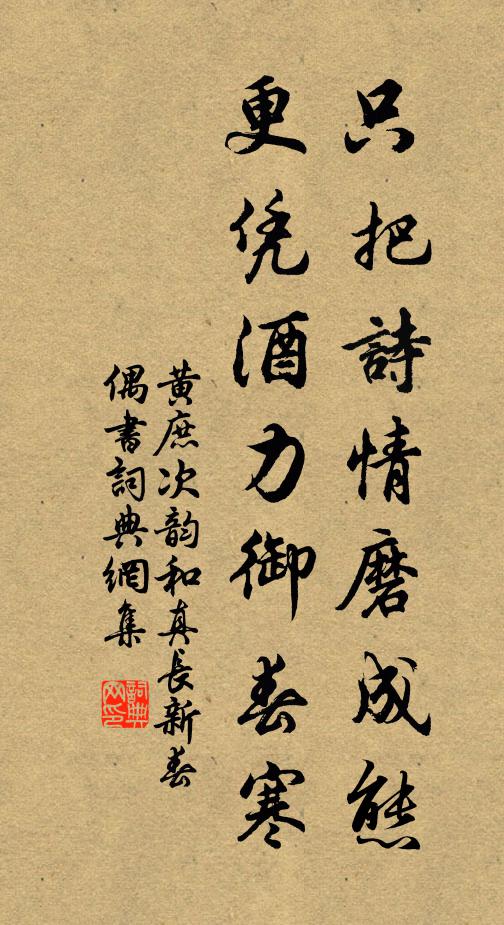 只把詩情磨成態
更凭酒力御春寒
黄庶次韵和真長新春
偶書詞典網集
詞典网印